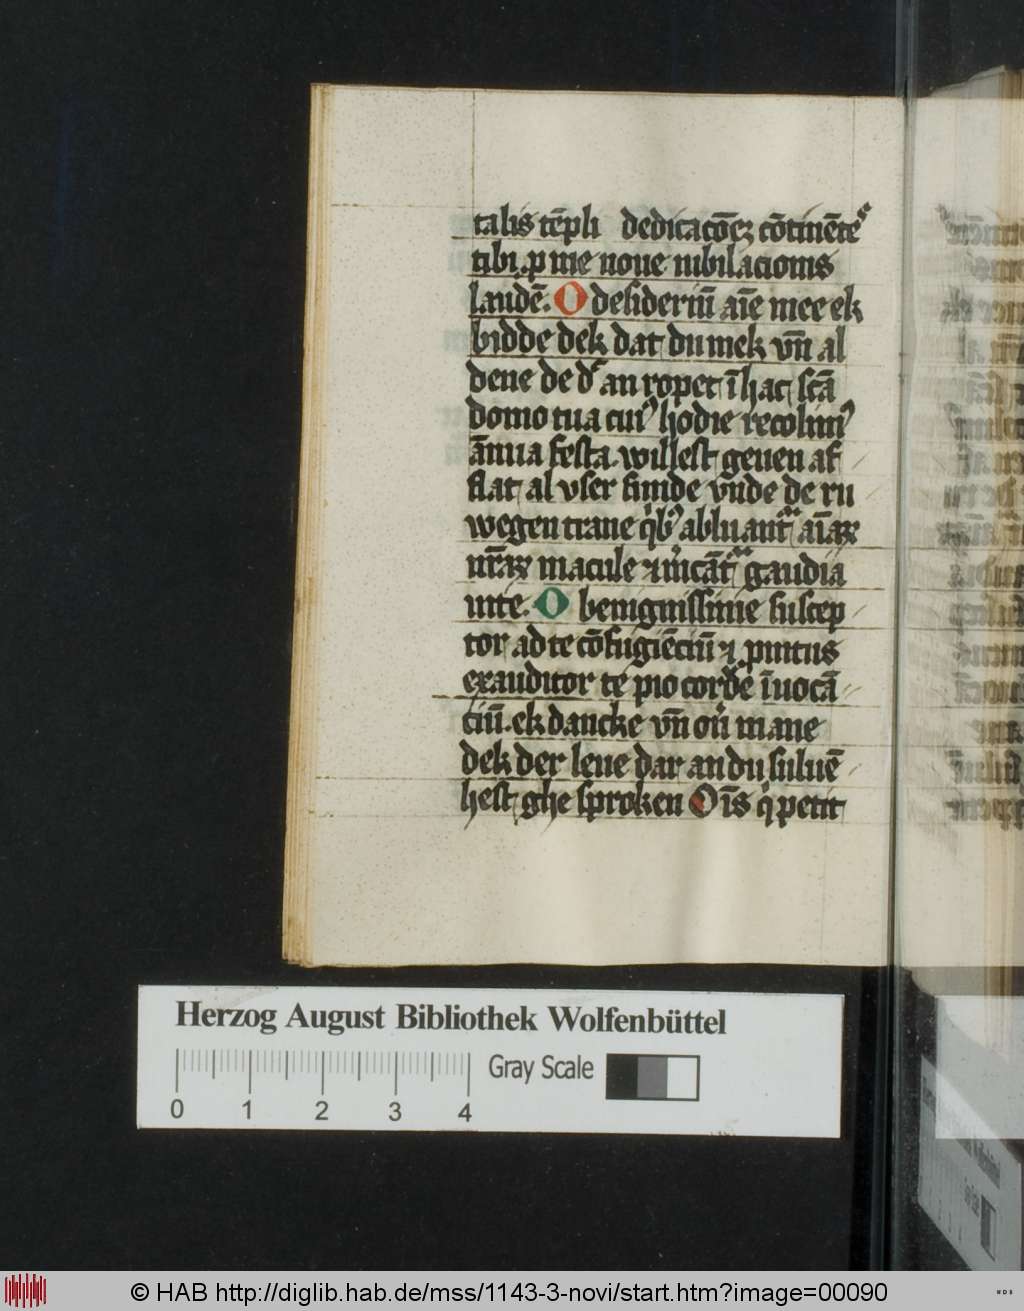 talis tēpli dedicacōēꝫ cōtinēte
tibi ꝓ me noue iubilacionis
laudē. O desideriū aīe mee ek
bidde dek dat du mek vn̄ al
dene de d' an ropet ī hac scā
domo tua cui⁹ hodie recolim⁹
ānua festa. willest geuen af
flat al vser sunde vn̄de de ru
wegen trane q̇b⁹ abluant᷑ aīaꝝ
nr̄aꝝ macule
gaudia
vite. O benignissime suscep
tor ad te cōfugiēciū ⁊ pius
exauditor te pio corde īuocā
ciū. ek dancke vn̄
mane
dek der leue dar an du suluē
hest ghe sproken Oīs q̇ petit
Herzog August Bibliothek Wolfenbüttel
0 1 2 3 4
Gray Scale
© HAB http://diglib.hab.de/mss/1143-3-novi/start.htm?image=00090